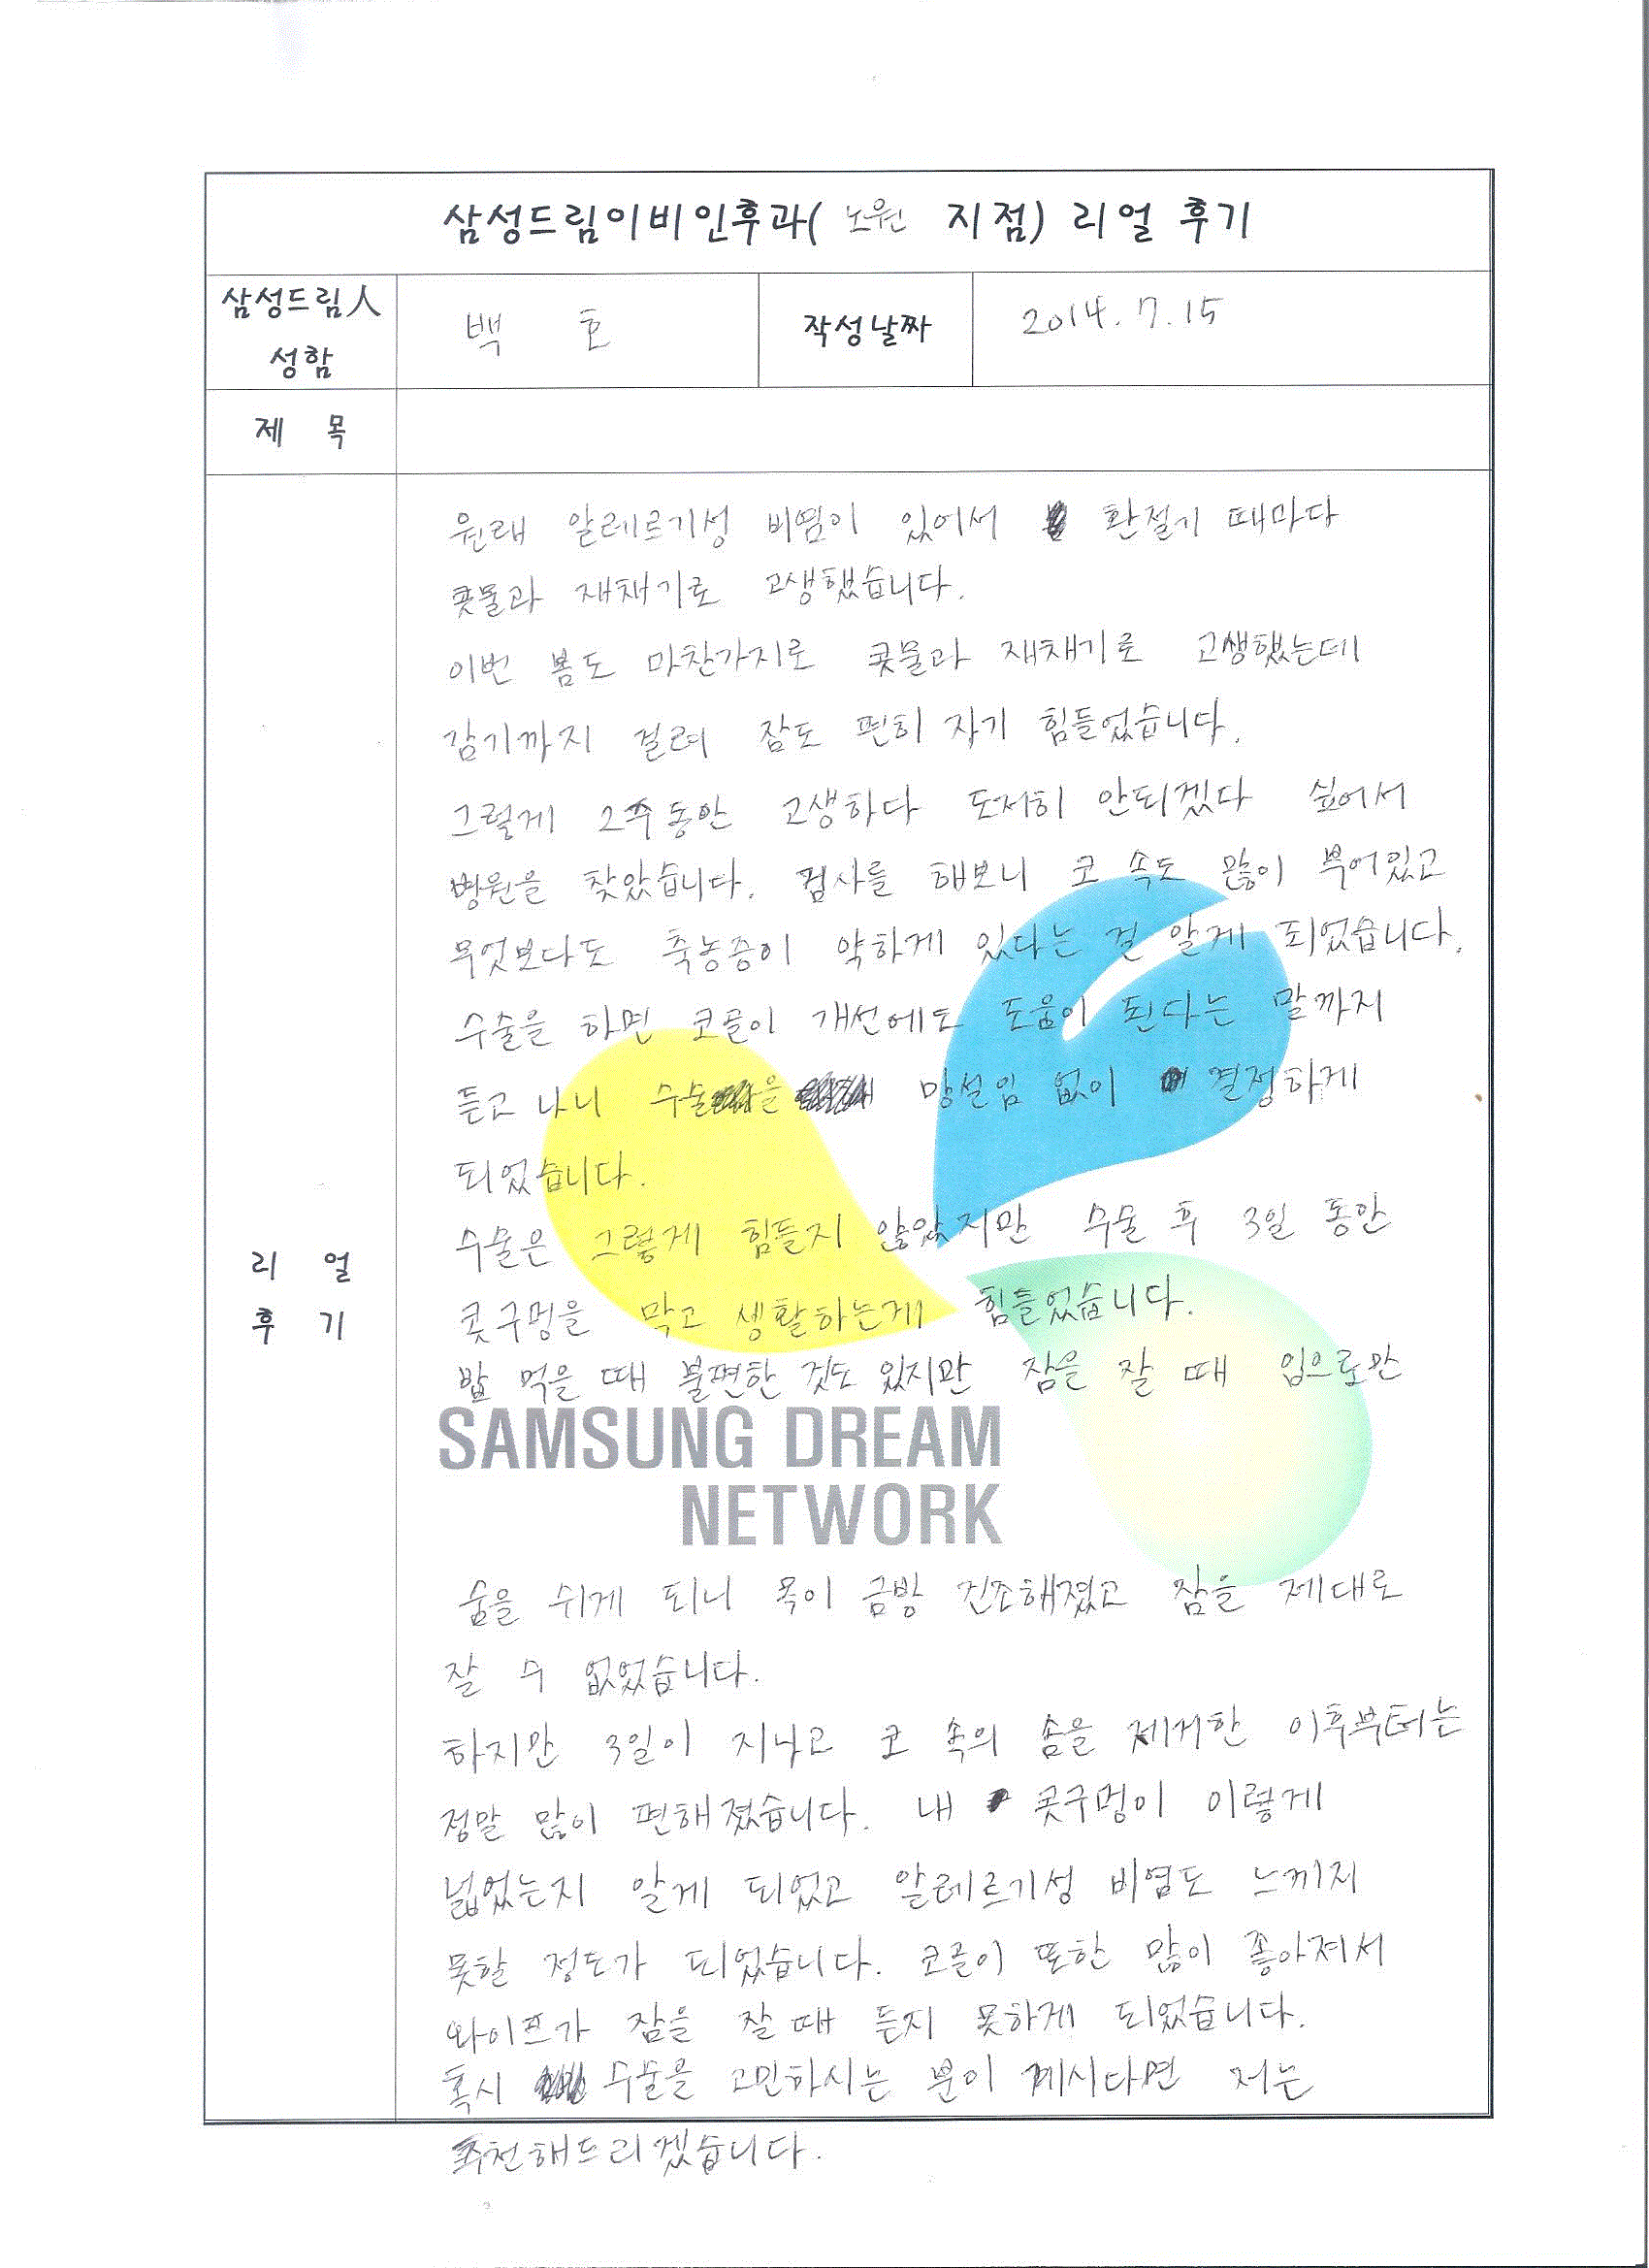 삼성드림이비인후과( 노원 지점) 리얼 후기
삼성드림人 성함
백 호
작성날짜
2014. 7. 15
제 목
리 얼 후 기
원래 알레르기성 비염이 있어서 환절기 때마다
콧물과 재채기로 고생했습니다.
이번 봄도 마찬가지로 콧물과 재채기로 고생했는데
감기까지 걸려 잠도 편히 자기 힘들었습니다.
그렇게 2주동안 고생하다 도저히 안되겠다 싶어서
병원을 찾았습니다. 검사를 해보니 코 속도 많이 부어있고
무엇보다도 축농증이 약하게 있다는 걸 알게 되었습니다.
수술을 하면 코골이 개선에도 도움이 된다는 말까지
듣고 나니 수술을 망설임 없이 결정하게
되었습니다.
수술은 그렇게 힘들지 않았지만 수술 후 3일 동안
콧구멍을 막고 생활하는게 힘들었습니다.
밥 먹을 때 불편한 것도 있지만 잠을 잘 때 입으로만
SAMSUNG DREAM
NETWORK
숨을 쉬게 되니 목이 금방 건조해졌고 잠을 제대로
잘 수 없었습니다.
하지만 3일이 지나고 코 속의 솜을 제거한 이후부터는
정말 많이 편해졌습니다. 내 콧구멍이 이렇게
넓었는지 알게 되었고 알레르기성 비염도 느끼지
못할 정도가 되었습니다. 코골이 또한 많이 좋아져서
와이프가 잠을 잘때 듣지 못하게 되었습니다.
혹시 수술을 고민하시는 분이 계시다면 저는
추천해드리겠습니다.